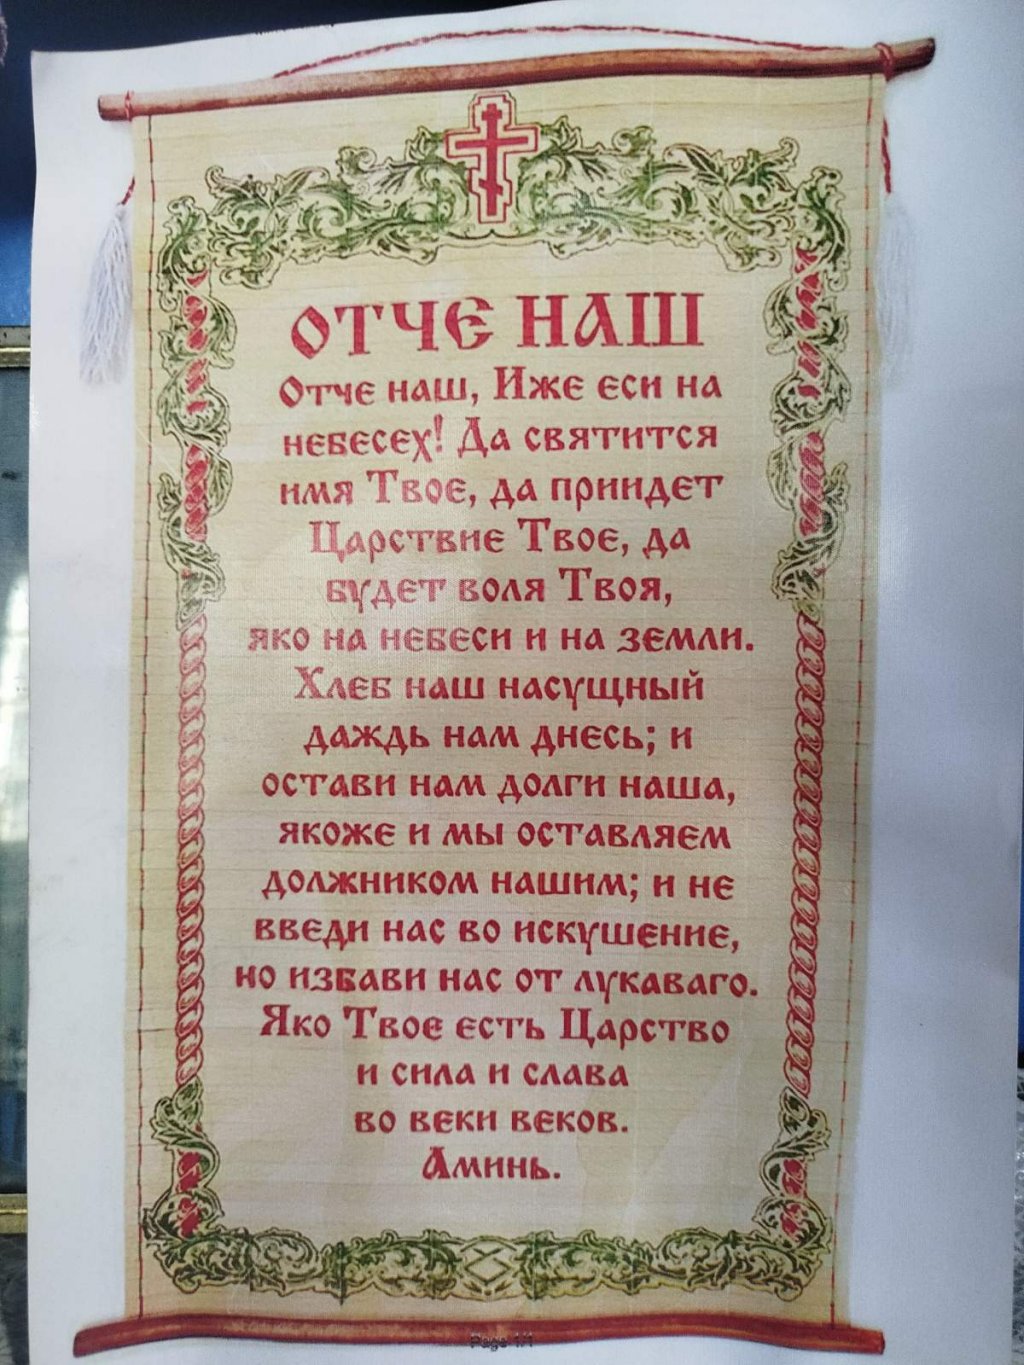 ОТЧЕ НАШ
Отче наш, Иже еси на
небесех! Да святится
имя Твое, да приидет
Царствие Твое, да
будет воля Твоя,
яко на небеси и на земли.
Хлеб наш насущный
даждь нам днесь; и
остави нам долги наша,
якоже и мы оставляем
должником нашим; и не
введи нас во искушение,
но избави нас от лукаваго.
Яко Твое есть Царство
и сила и слава
во веки веков.
Аминь.
Page 1/1